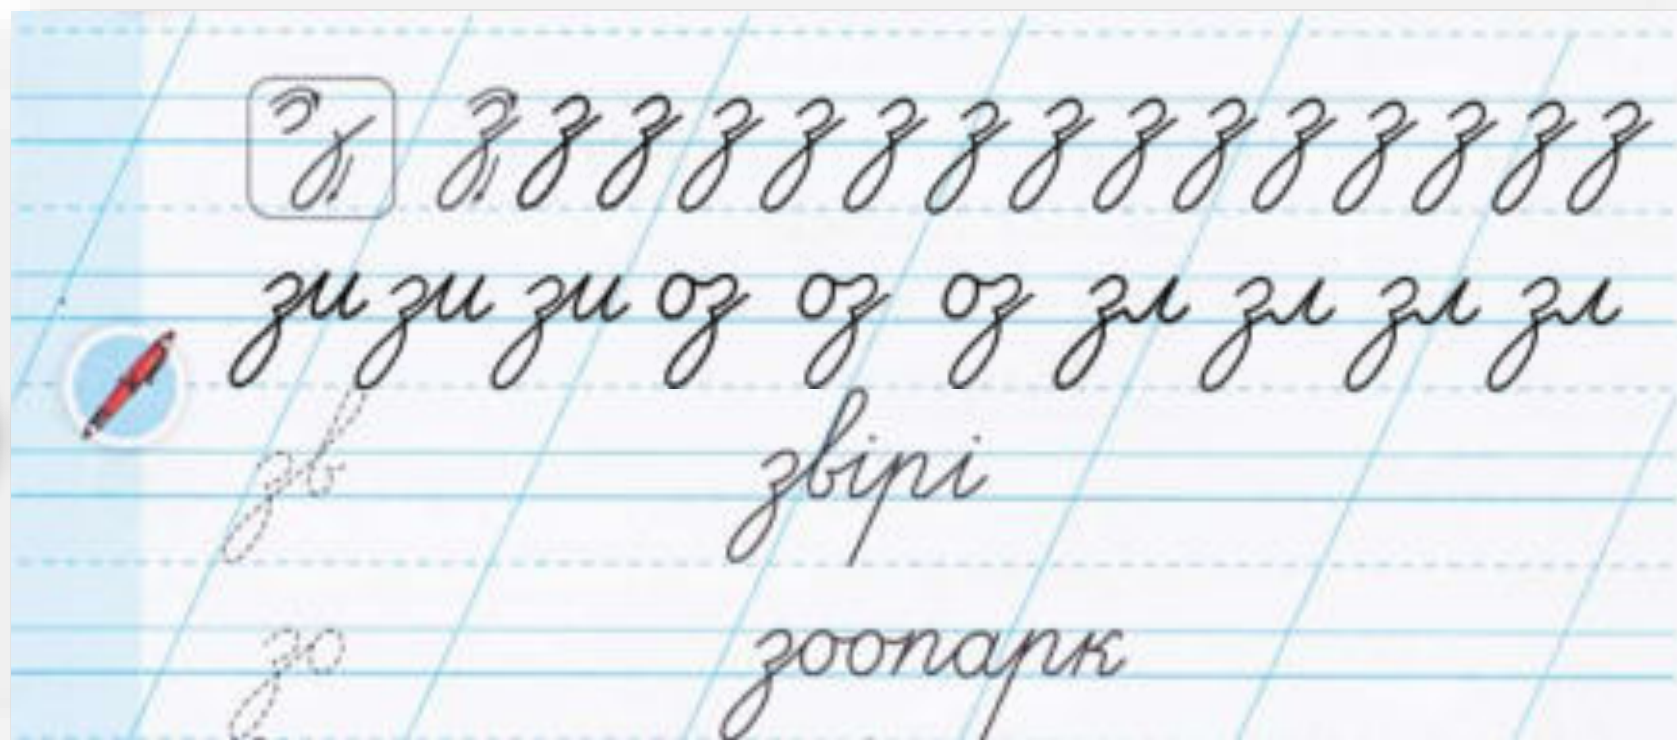 з з з з з з з з з з з з з з з
зи зи зи оз оз оз зл зл зл зл
зв звірі
зо зоопарк